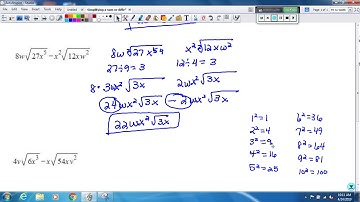 8w√27x⁵ − x²√12xw²
8w√27x⁵9 x²√12xw²
27÷9=3 12÷4=3
8·3wx²√3x 2wx²√3x
24wx²√3x − 2wx²√3x
22wx²√3x
1²=1 6²=36
2²=4 7²=49
3²=9 8²=64
4²=16 9²=81
5²=25 10²=100
4v√6x³ − x√54xv²